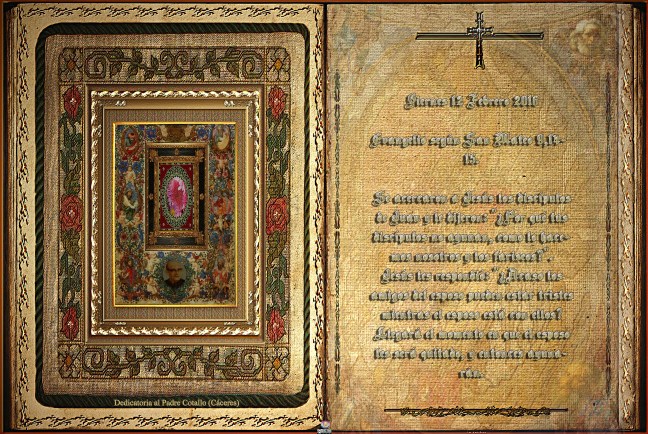 Dedicatoria al Padre Cotallo (Cáceres)
Viernes 12 Febrero 2016
Evangelio según San Mateo 9,14-
15.
Se acercaron a Jesús los discípulos
de Juan y le dijeron: "¿Por qué tus
discípulos no ayunan, como lo hace-
mos nosotros y los fariseos?".
Jesús les respondió: "¿Acaso los
amigos del esposo pueden estar tristes
mientras el esposo está con ellos?
Llegará el momento en que el esposo
les será quitado, y entonces ayuna-
rán.